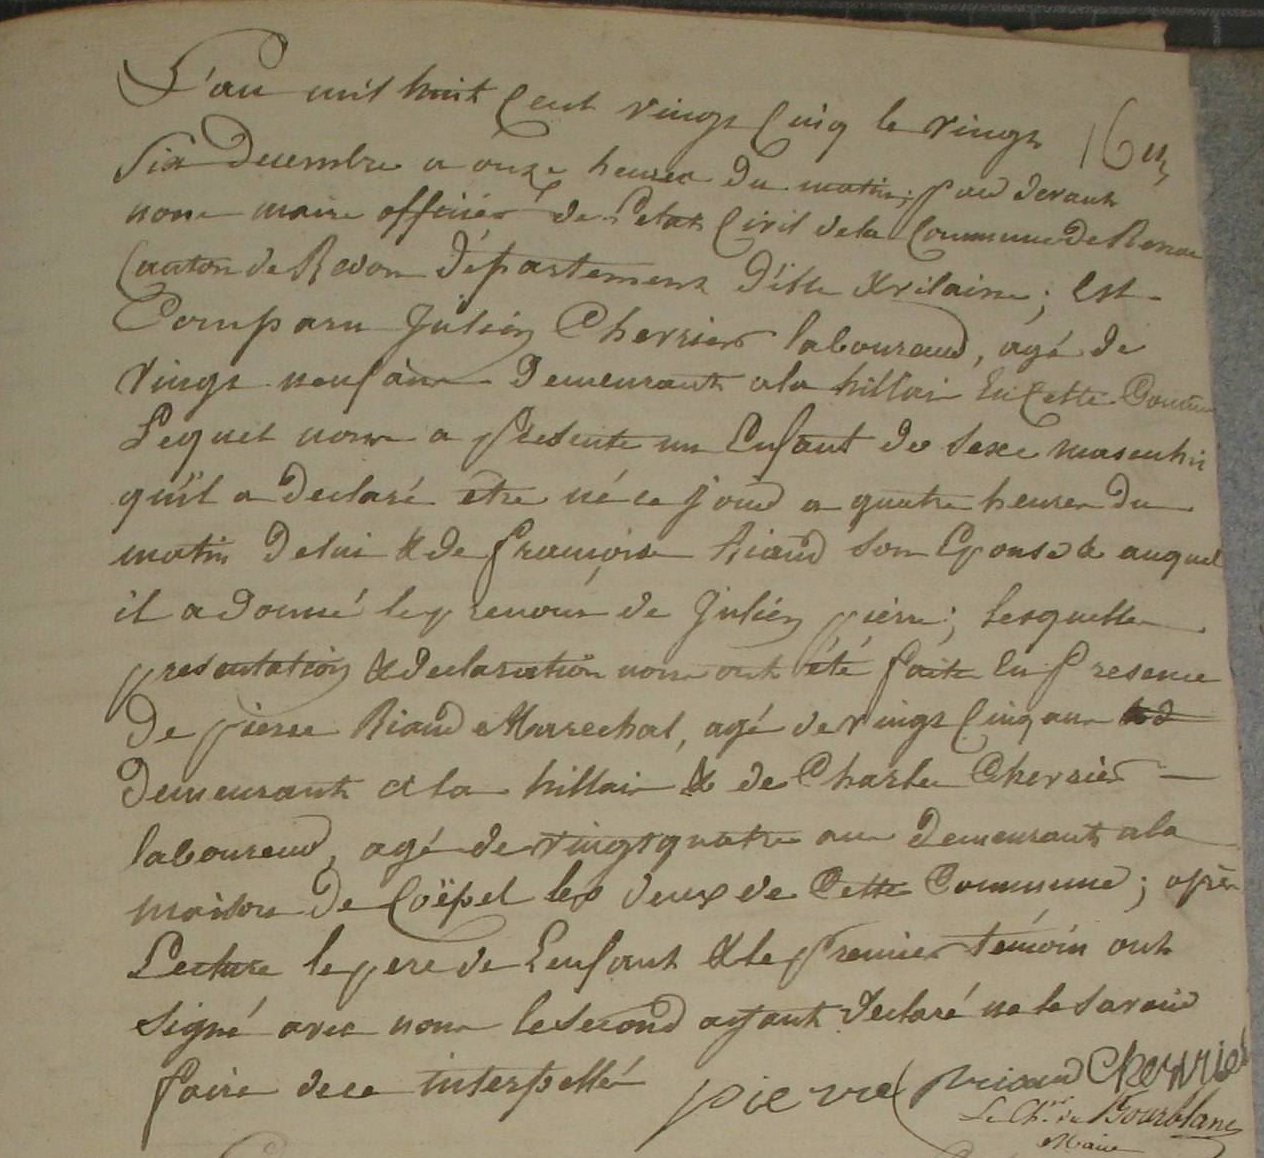 L'an mil huit Cent vingt Cinq le vingt
Six Decembre a onze heures du matin; par devant
nous maire officiér de L'etat Civil de la Commune de Renac
Canton de Redon Département D'ille & vilaine; Est
Comparu Julien Chevrier laboureur, agé de
vingt neuf ans Demeurant a la hillais En Cette Comune
Lequel nous a Presenté un Enfant de Sexe masculin
qu'il a Declaré etre né ce jour a quatre heures Du
matin De lui & de françoise Riaud Son Epouse & auquel
il a donné le prenom de Julien pierre; Lesquelles
presentation & declaration nous ont été faite En Presence
De pierre Riaud Marechal, agé de vingt Cinq ans
Demeurant a la hillais & de Charles Chevrier
laboureur, agé de vingt quatre ans Demeurant a la
maison De Coëpel les deux de Cette Commune; après
Lecture le pere de L'enfant & le Premier témoin ont
Signé avec nous le Second ayant Declaré ne le Savoir
faire de ce interpellé pierre Riaud Chevrier
Le Ch.er du Bourblanc
Maire